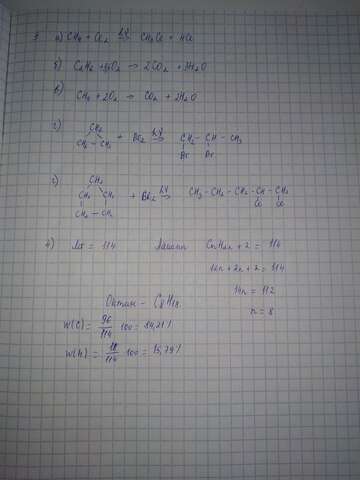 3 а) CH₄ + Cl₂ →(hν) CH₃Cl + HCl
б) C₂H₂ + O₂ → 2CO₂ + H₂O
в) CH₄ + 2O₂ → CO₂ + 2H₂O
г)
CH₂
CH₂ – CH₂ + Br₂ →(hν) CH₂ – CH – CH₃
Br Br
CH₂
CH₂ CH₂ + →(hν) CH₃ – CH₂ – CH₂ – CH – CH₂
CH₂ – CH₂ Cl Cl
4) Mr = 114 CnH2n + 2 = 114
12n + 2n + 2 = 114
14n = 112
n = 8
Октан – C₈H₁₈
W(C) = 96/114 100 = 84,21%
W(H) = 18/114 100 = 15,79%